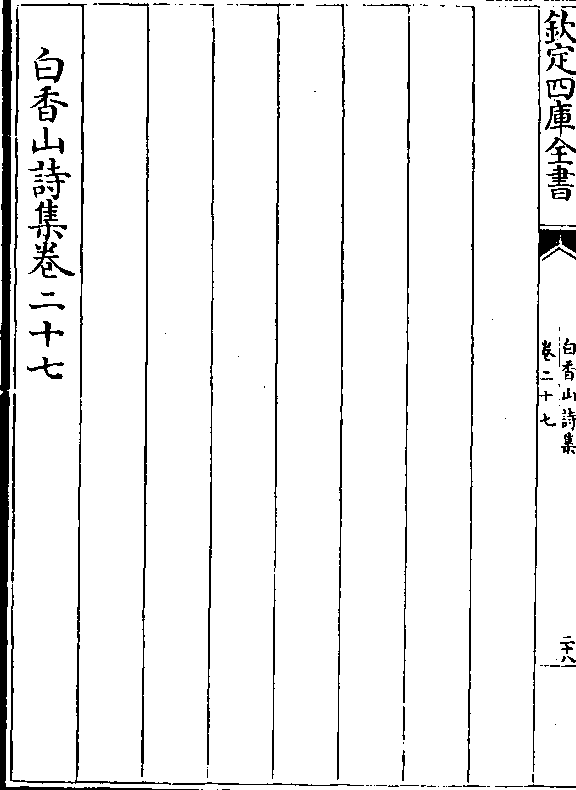 欽定四庫全書
白香山詩集
卷二十七
二十八
白香山詩集卷二十七